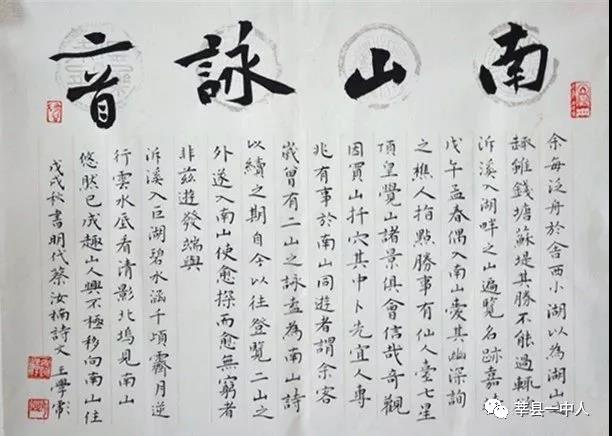 南山詠二首
余每泛舟於舍西小湖以為湖山
趣雖錢塘蘇堤其勝不能過輒
泝溪入湖畔之山遍覽名跡嘉
戊午孟春偶入南山愛其幽深詢
之樵人指點勝事有仙人臺七星
項皇覺山諸景俱會信哉奇觀
因買山扦穴其中卜先宜人專
兆有事於南山同遊者謂余客
歲曾有二山之詠盍為南山詩
以續之期自今以往登覽二山之
外遂入南山使愈探而愈無窮者
非茲遊發端與
泝溪入巨湖碧水涵千頃霽月逆
行雲水底看清影北塢見南山
悠然已成趣山人興不極移向南山住
戊戌秋書明代蔡汝楠詩文 王學
莘县一中人